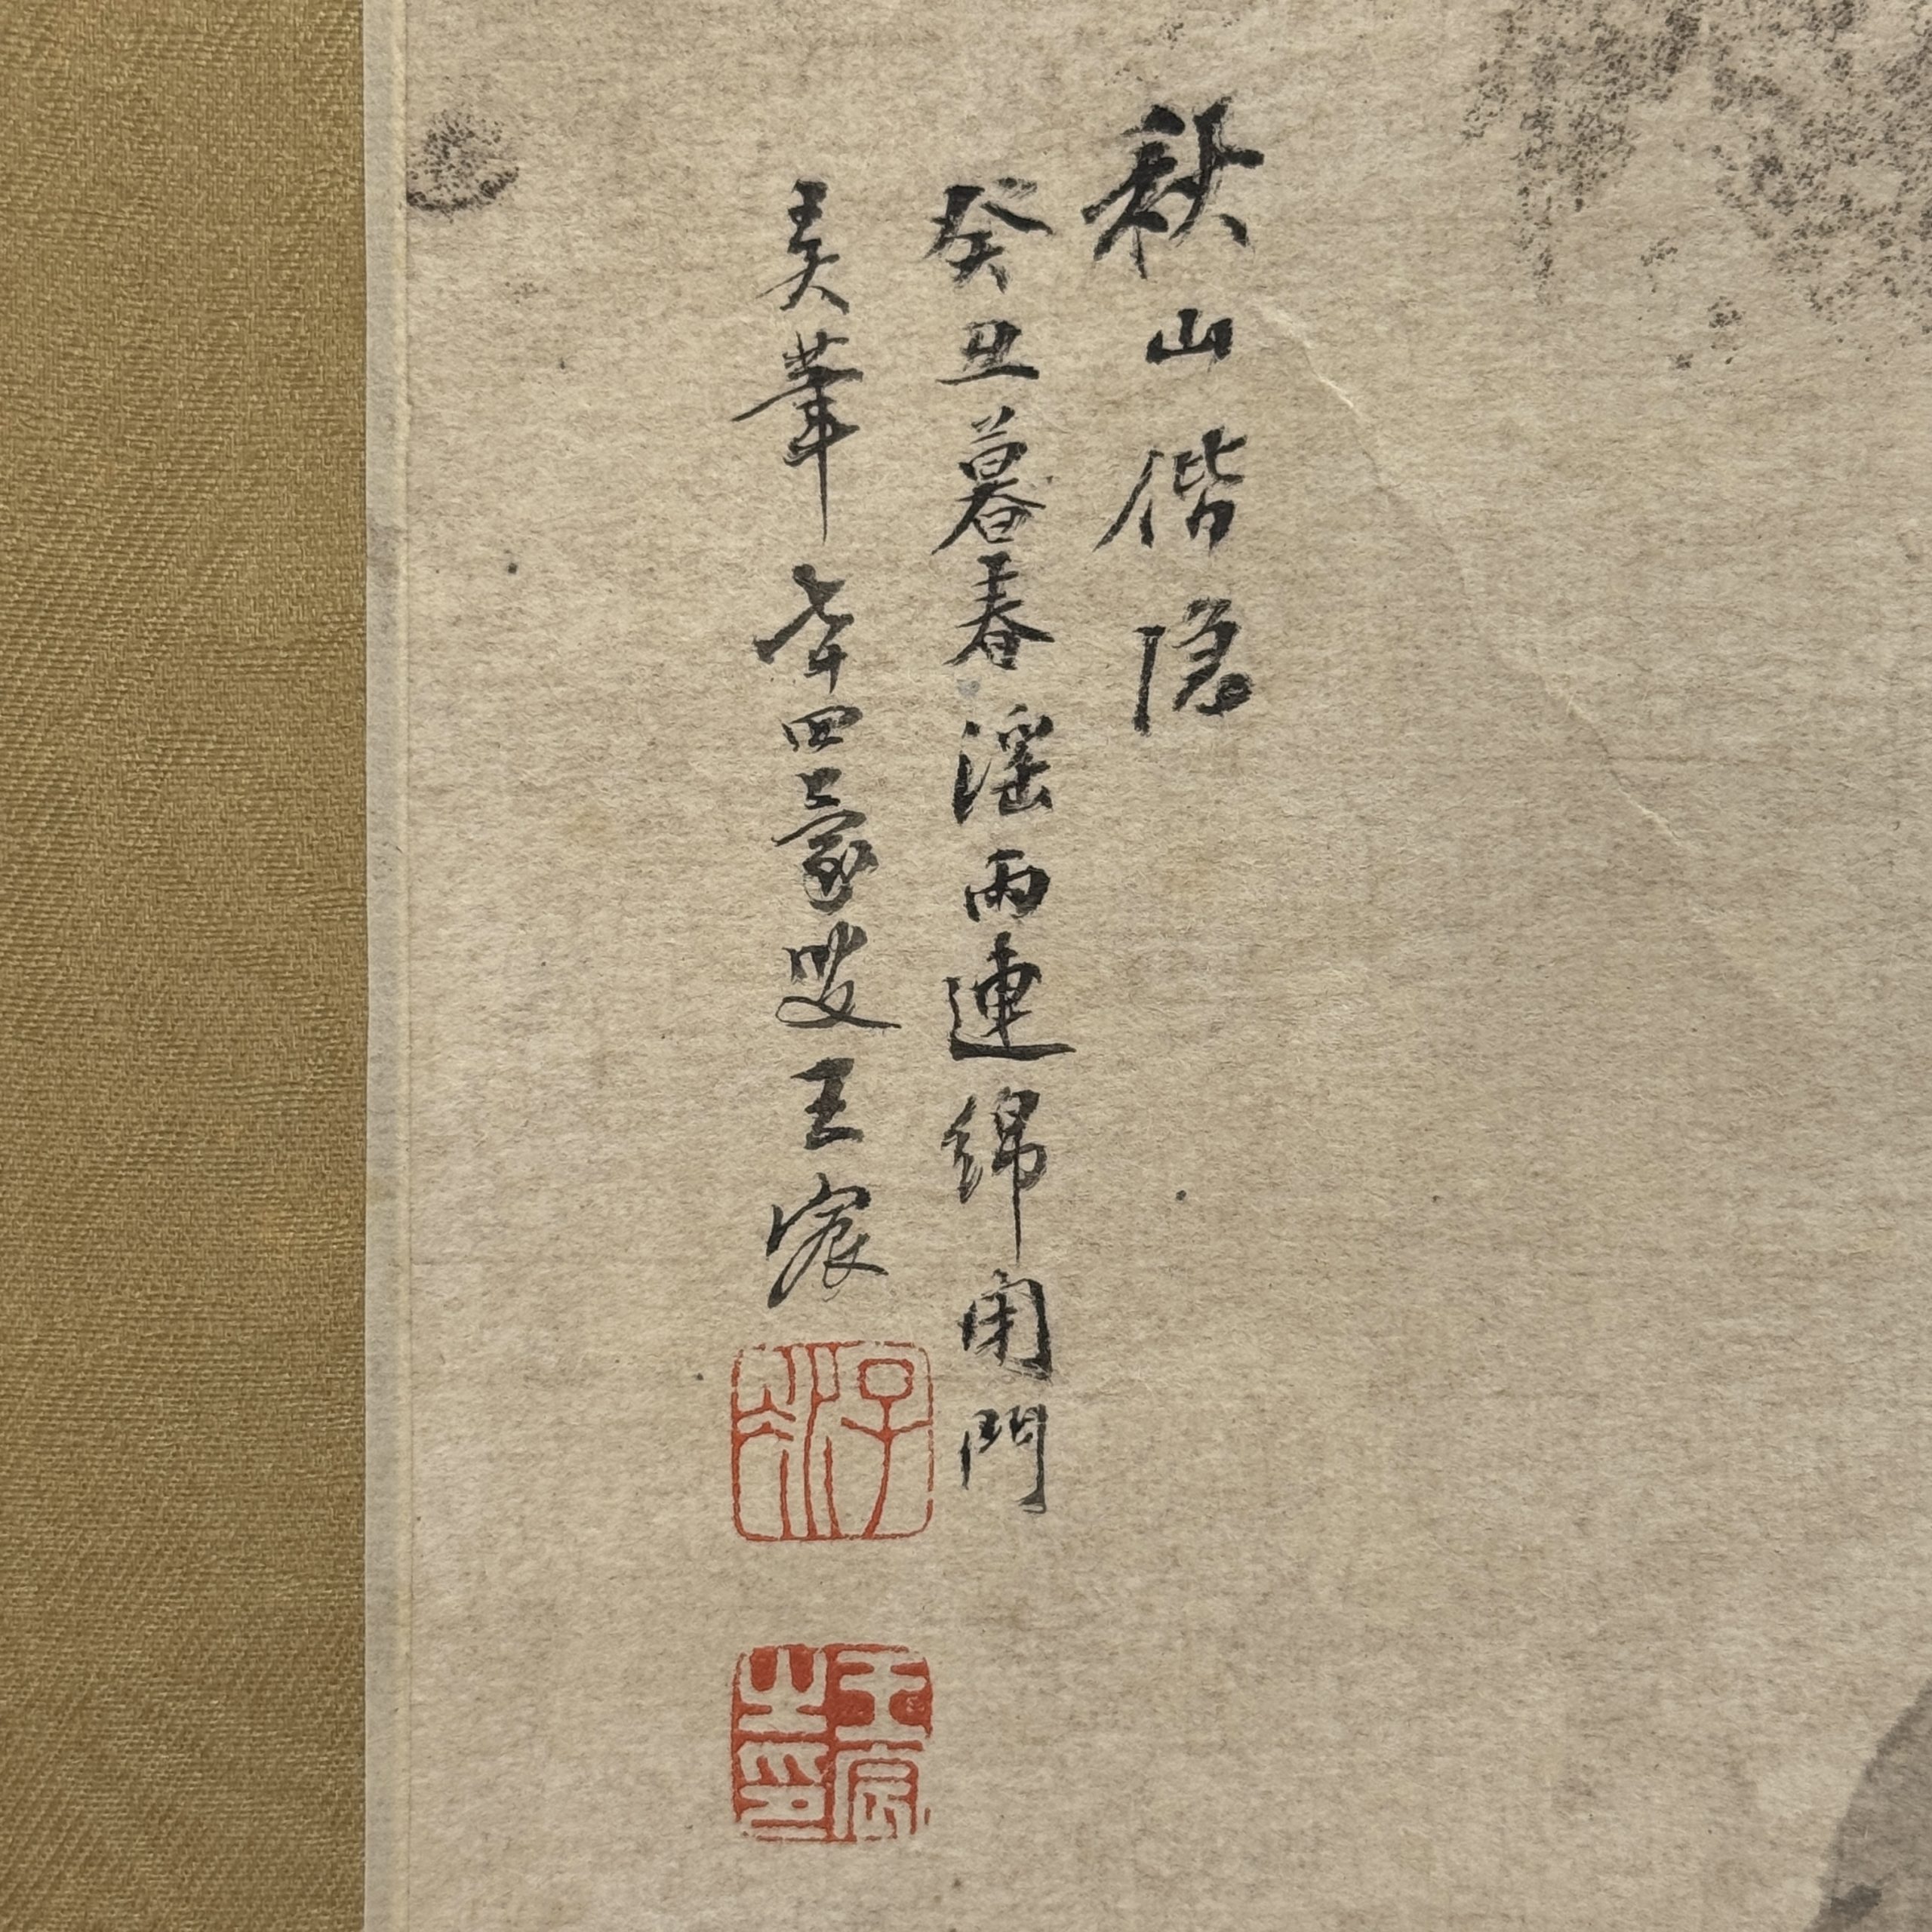 秋山偕隱
癸丑暮春淫雨連綿閉門
弄筆七十四蒙叟王宸
王宸之印